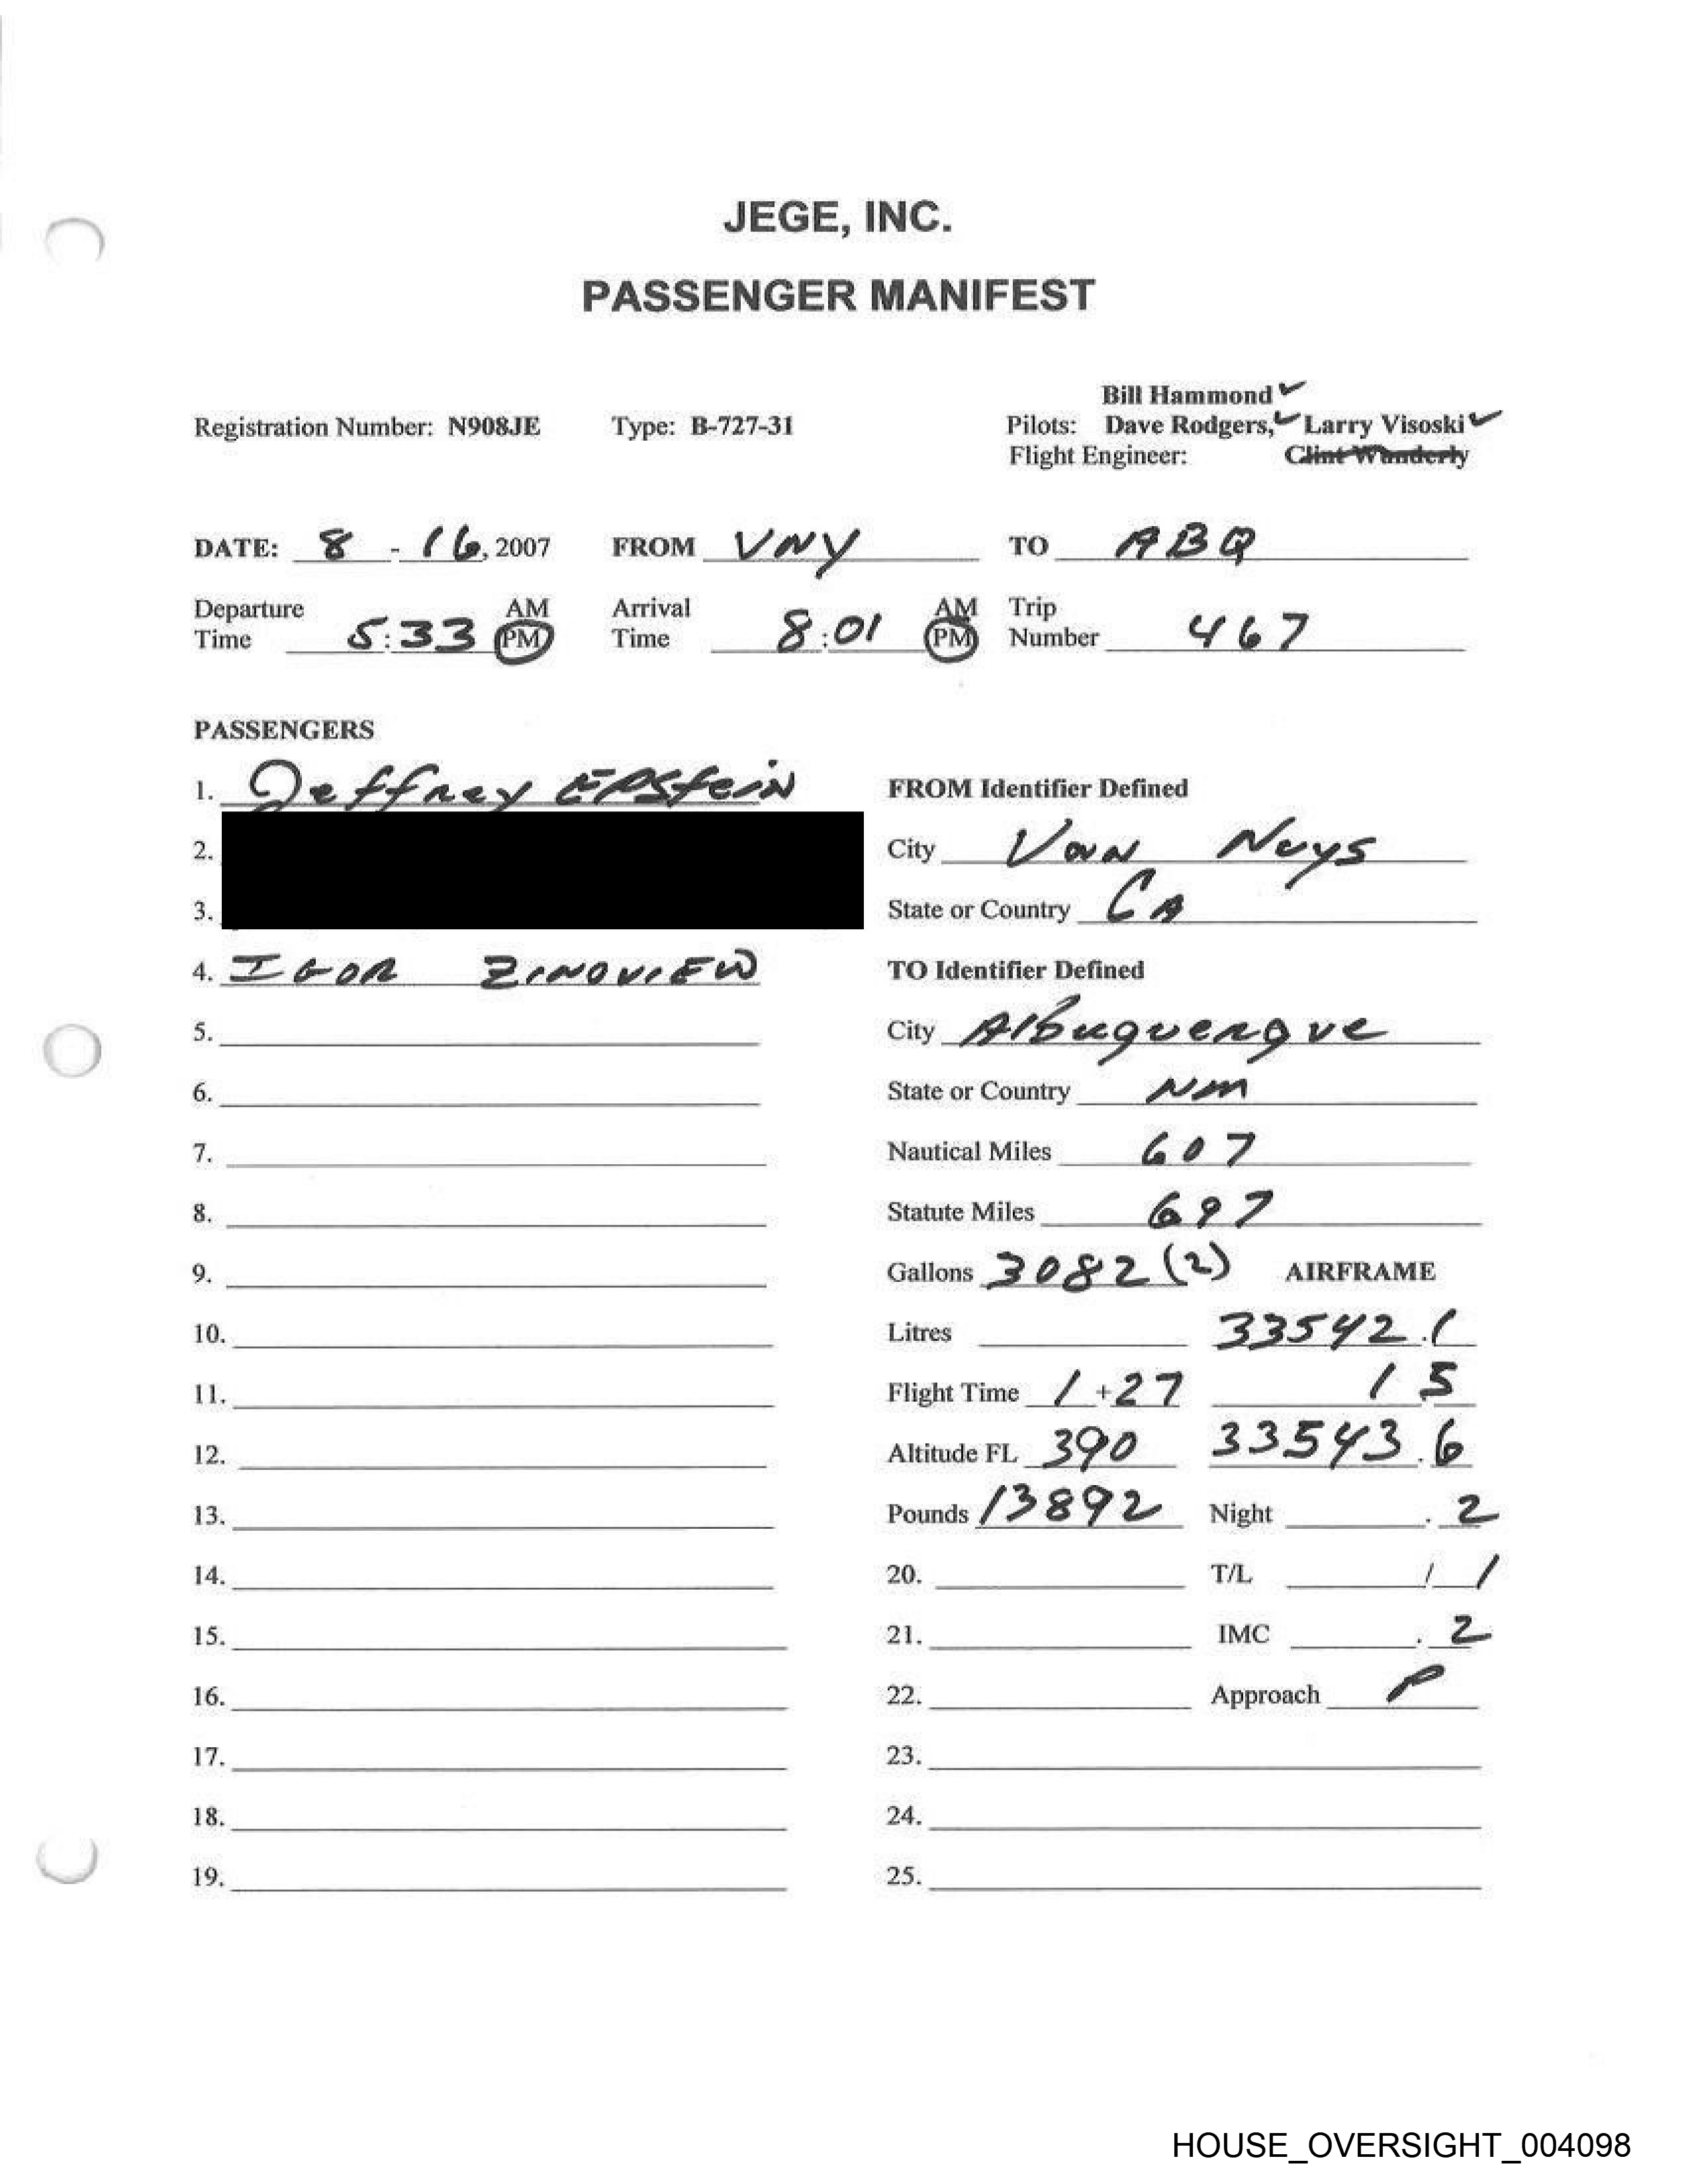 JEGE, INC.
PASSENGER MANIFEST
Bill Hammond ✓
Registration Number: N908JE Type: B-727-31 Pilots: Dave Rodgers, ✓ Larry Visoski ✓
Flight Engineer: Clint Wanderly
DATE: 8 - 16, 2007 FROM VNY TO ABQ
Departure AM Arrival AM Trip
Time 5:33 PM Time 8:01 PM Number 467
PASSENGERS
1. Jeffrey Epstein
FROM Identifier Defined
2.
City Van Nuys
3.
State or Country CA
4. IGOR ZINOVIEW
TO Identifier Defined
5.
City Albuquerque
6.
State or Country NM
7.
Nautical Miles 607
8.
Statute Miles 697
9.
Gallons 3082 (2) AIRFRAME
10.
Litres 33542.1
11.
Flight Time 1+27 1 5
12.
Altitude FL 390 33543.6
13.
Pounds 13892 Night .2
14.
20. T/L / 1
15.
21. IMC .2
16.
22. Approach P
17.
23.
18.
24.
19.
25.
HOUSE_OVERSIGHT_004098